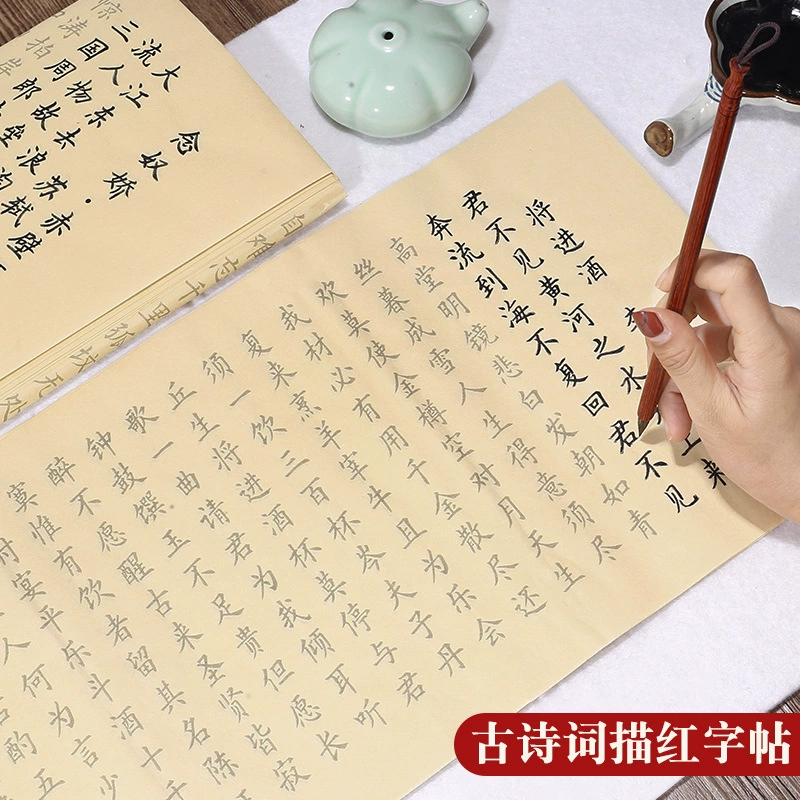 念奴娇·赤壁
苏轼
大江东去浪淘
流人物故垒
三国周郎
惊涛拍岸
自难忘千里孤坟无处
将进酒
君不见黄河之水上来
奔流到海不复回君不见
高堂明镜悲白发朝如青
丝暮成雪人生得意须尽
欢莫使金樽空对月天生
我材必有用千金散尽还
复来烹羊宰牛且为乐会
须一饮三百杯岑夫子丹
丘生将进酒杯莫停与君
歌一曲请君为我倾耳听
钟鼓馔玉不足贵但愿长
醉不愿醒古来圣贤皆寂
寞惟有饮者留其名陈
时宴平乐斗酒十千
人何为言少
酌五
古诗词描红字帖